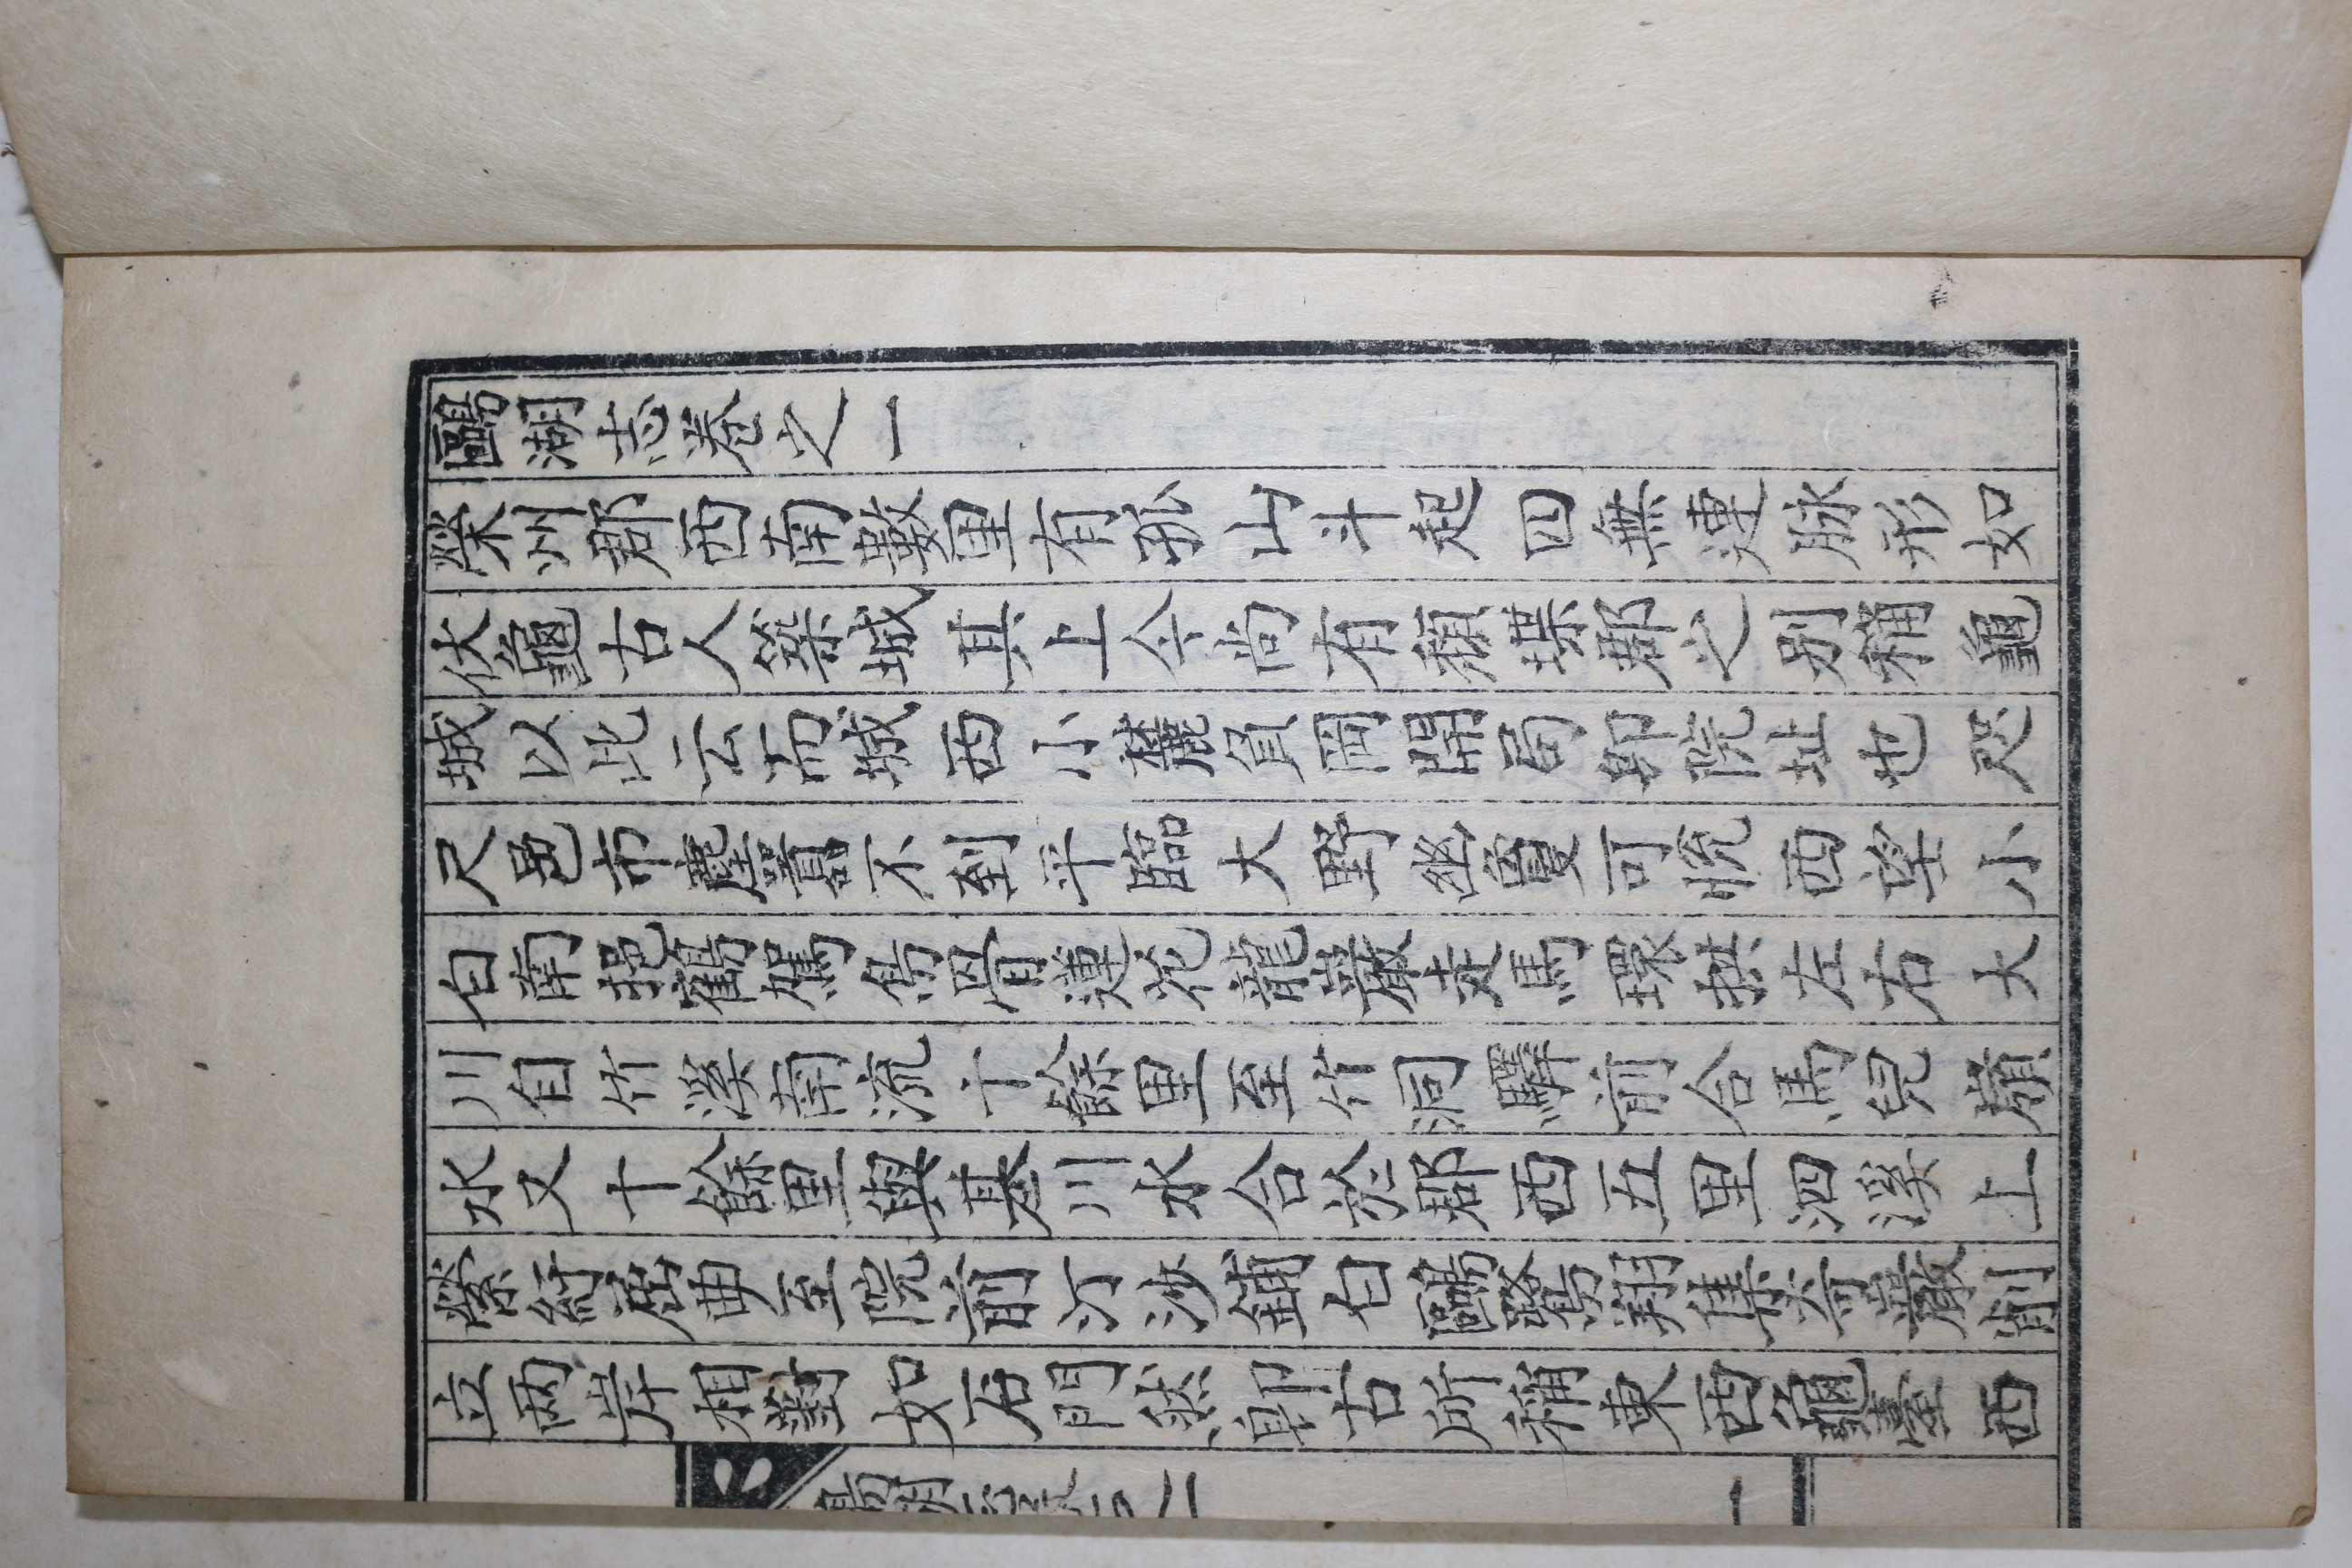 鷗湖志卷之一
榮州郡西南數里有孤山斗起四無連脉形如
伏龜古人築城其上今尚有頹堞郡之別稱龜
城以此云而城西小麓負岡開局卽院址也咫
尺邑市塵囂不到平臨大野幽敻可悅西望小
白南挹鶴駕烏骨蓮花龍巖走馬環拱左右大
川自竹溪南流十餘里至竹洞驛前合馬兒嶺
水又十餘里與基川水合於郡西五里泗溪上
縈紆屈曲至院前汀沙鋪白鷗鷺翔集奇巖削
立两岸相對如石門然卽古所稱東西龜臺西
鷗湖志卷之一
一